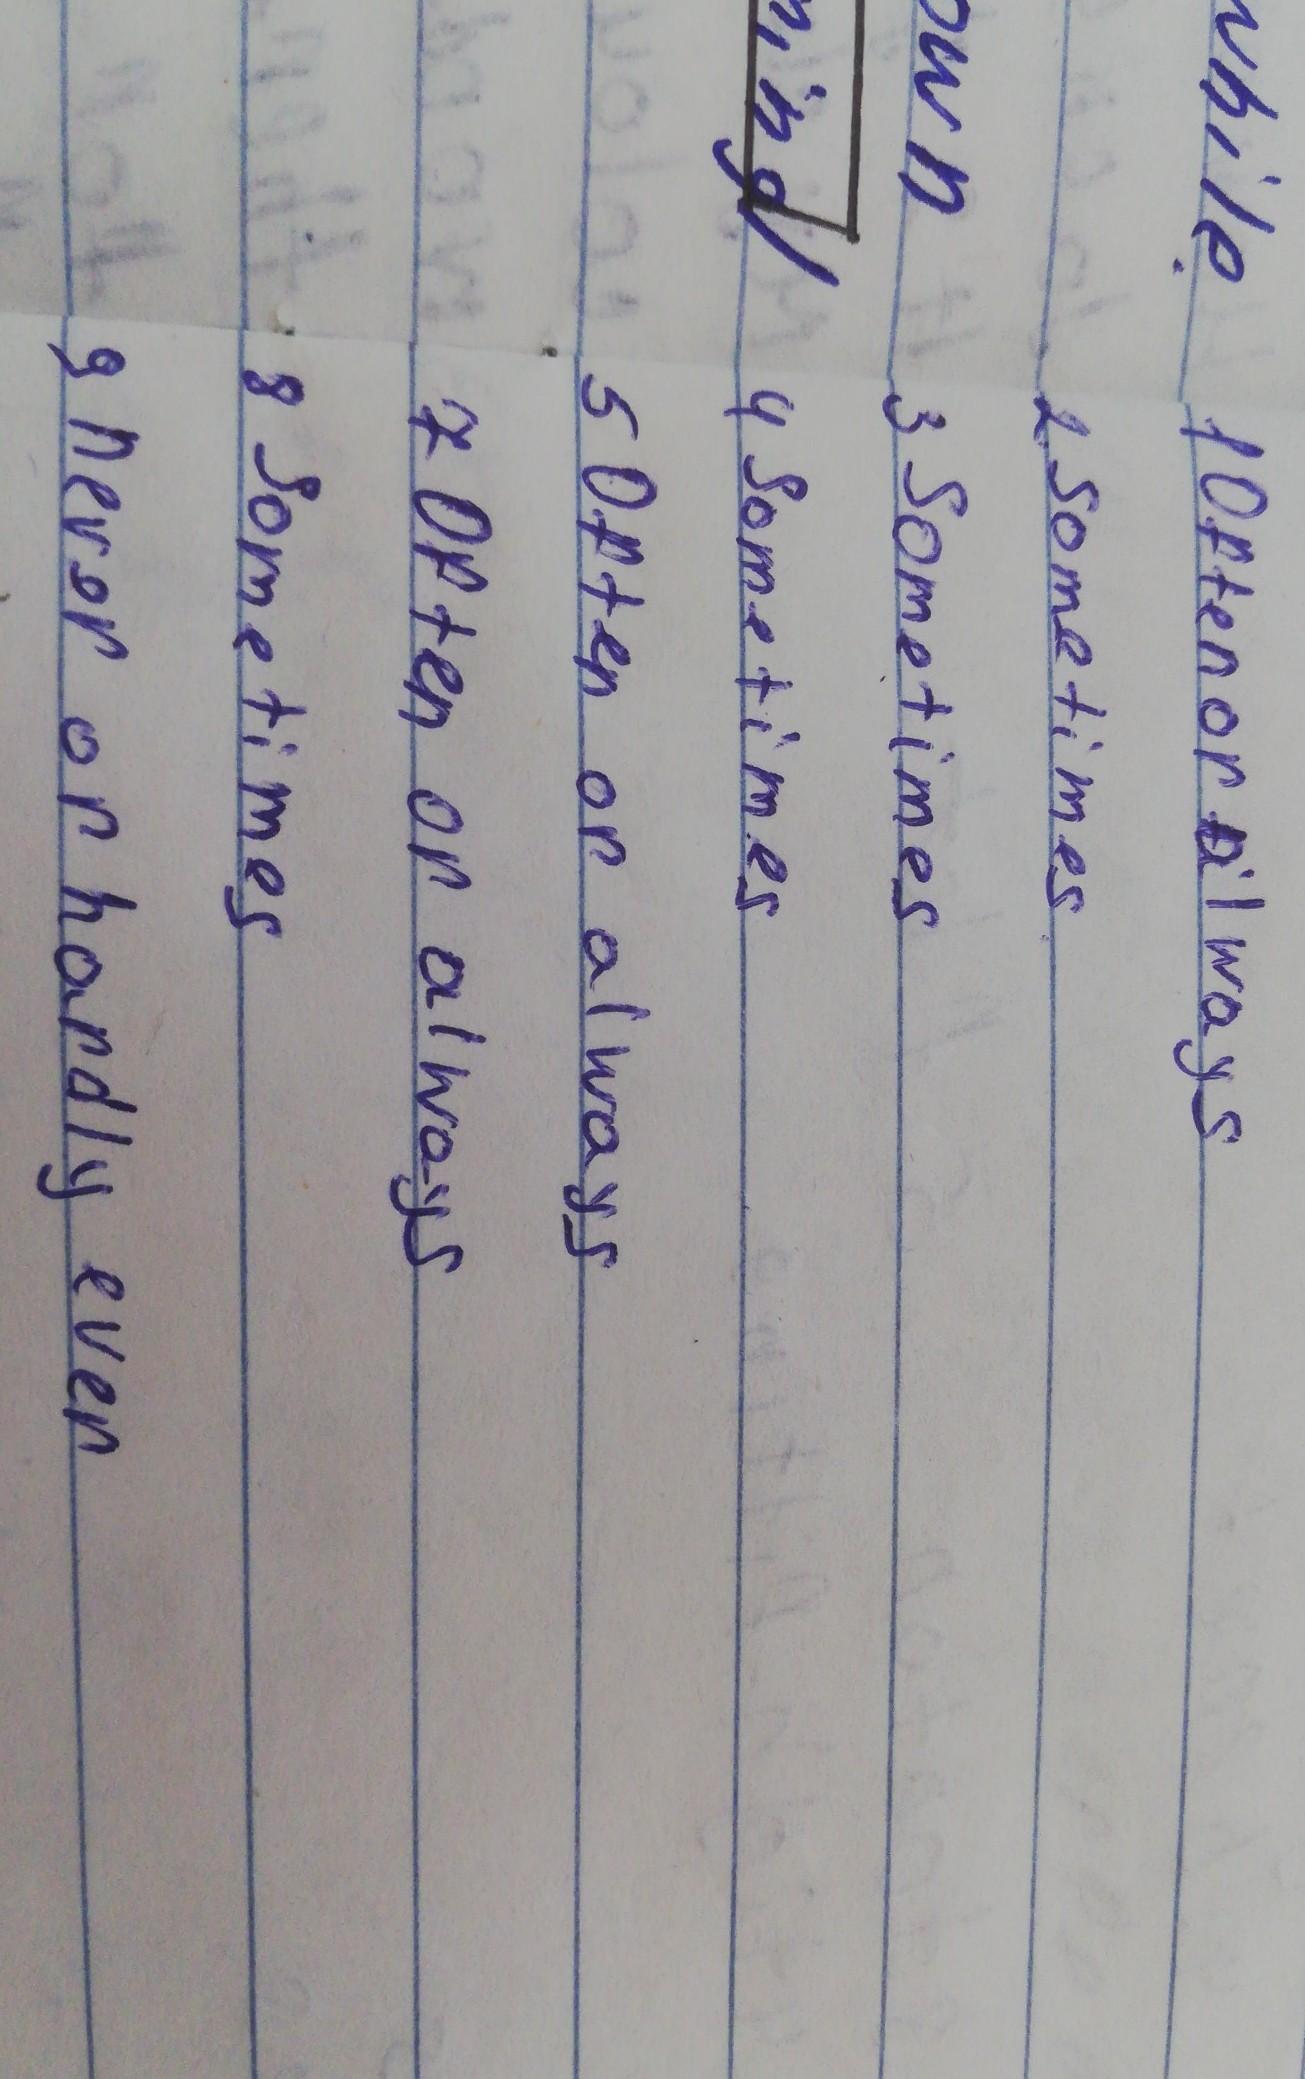 while. 1 Often or always
2 Sometimes
own 3 Sometimes
mind 4 Sometimes
5 Often or always
7 Often or always
8 Sometimes
9 never or hardly ever